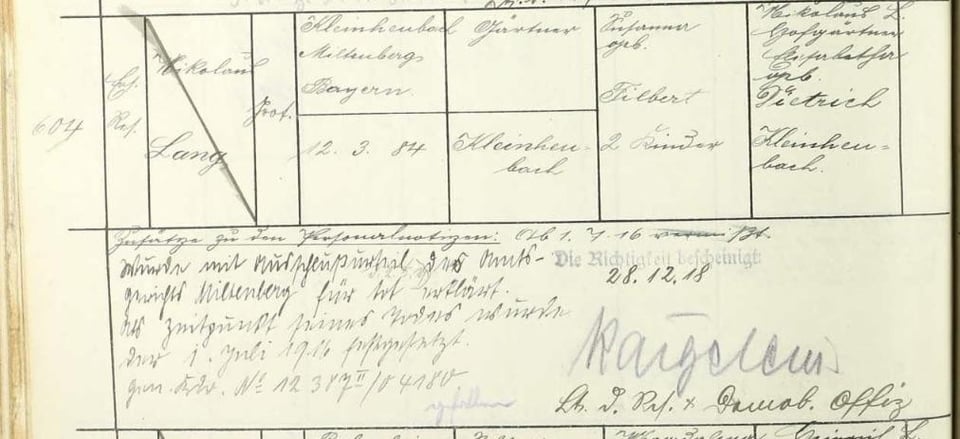 604
Ers.
Res.
Nikolaus
Lang
Prot.
Kleinheubach
Miltenberg
Bayern.
12. 3. 84
Gärtner
Kleinheu-
bach
Susanna
geb.
Filbert
2 Kinder
Nikolaus L.
Hofgärtner
Elisabetha
geb.
Dietrich
Kleinheu-
bach.
Zusätze zu den Personalnotizen: Ab 1. 7. 16 vermißt.
Wurde mit Ausschlußurteil des Amts-
gerichts Miltenberg für tot erklärt.
Als Zeitpunkt seines Todes wurde
der 1. Juli 1916 festgesetzt.
Gen. Kdo. No 12387 II/04180
gefallen
Die Richtigkeit bescheinigt:
28.12.18
Lt. d. Res. & Demob. Offiz